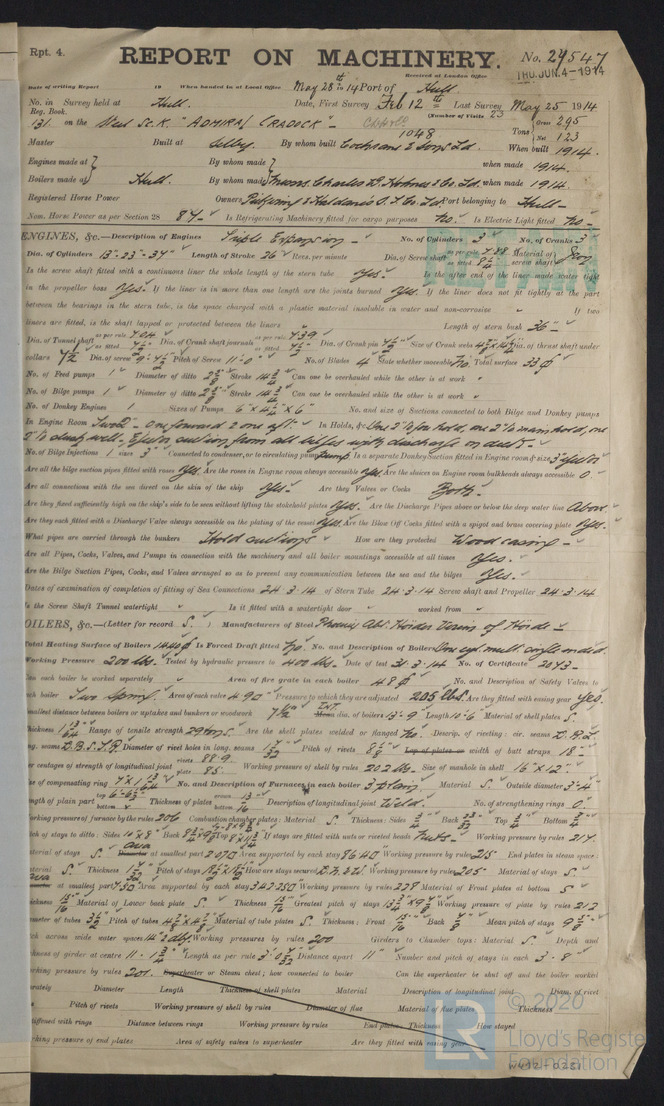 Rpt. 4.
REPORT ON MACHINERY.
No. 29547
Received at London Office THU. JUN. 4 - 1914
Date of writing Report 19 When handed in at Local Office May 28th 1914 Port of Hull
No. in Survey held at Hull. Date, First Survey Feb 12th Last Survey May 25 1914
Reg. Book. (Number of Visits 23
131. on the Steel Sc. K. "ADMIRAL CRADOCK" Tons Gross 295 Net 123
1048
Master Built at Selby. By whom built Cochrane & Sons Ld. When built 1914.
Engines made at By whom made when made 1914.
Boilers made at Hull. By whom made Messrs. Charles D. Holmes & Co. Ld. when made 1914.
Registered Horse Power Owners Pickering & Haldane's S. T. Co. Ld. Port belonging to Hull
Nom. Horse Power as per Section 28 84 Is Refrigerating Machinery fitted for cargo purposes No. Is Electric Light fitted No
ENGINES, &c.—Description of Engines Triple Expansion No. of Cylinders 3 No. of Cranks 3
Dia. of Cylinders 13"-23"-37" Length of Stroke 26" Revs. per minute Dia. of Screw shaft as per rule 7.88 Material of screw shaft Iron
Is the screw shaft fitted with a continuous liner the whole length of the stern tube Yes. Is the after end of the liner made water tight
in the propeller boss Yes. If the liner is in more than one length are the joints burned Yes. If the liner does not fit tightly at the part
between the bearings in the stern tube, is the space charged with a plastic material insoluble in water and non-corrosive If two
liners are fitted, is the shaft lapped or protected between the liners Length of stern bush 36"
Dia. of Tunnel shaft as per rule 7.04 as fitted Dia. of Crank shaft journals as per rule 7.39 as fitted Dia. of Crank pin Size of Crank webs Dia. of thrust shaft under
collars 7½ Dia. of screw Pitch of Screw 11'-0" No. of Blades 4 State whether moveable No. Total surface 33
No. of Feed pumps 1 Diameter of ditto Stroke Can one be overhauled while the other is at work
No. of Bilge pumps 1 Diameter of ditto Stroke Can one be overhauled while the other is at work
No. of Donkey Engines 1 Sizes of Pumps No. and size of Suctions connected to both Bilge and Donkey pumps
In Engine Room Two 2" - one forward & one aft. In Holds, &c. One 2" fore hold, one 2" main hold, one
2" slush well. Ejector suction from all bilges with discharge on deck.
No. of Bilge Injections 1 sizes 3" Connected to condenser, or to circulating pump pump Is a separate Donkey Suction fitted in Engine room & size
Are all the bilge suction pipes fitted with roses Yes. Are the roses in Engine room always accessible Yes. Are the sluices on Engine room bulkheads always accessible 0
Are all connections with the sea direct on the skin of the ship Yes Are they Valves or Cocks Both
Are they fixed sufficiently high on the ship's side to be seen without lifting the stokehold plates Yes. Are the Discharge Pipes above or below the deep water line Above.
Are they each fitted with a Discharge Valve always accessible on the plating of the vessel Yes. Are the Blow Off Cocks fitted with a spigot and brass covering plate Yes.
What pipes are carried through the bunkers Hold suctions How are they protected Wood casing
Are all Pipes, Cocks, Valves, and Pumps in connection with the machinery and all boiler mountings accessible at all times Yes.
Are the Bilge Suction Pipes, Cocks, and Valves arranged so as to prevent any communication between the sea and the bilges Yes.
Dates of examination of completion of fitting of Sea Connections 24.3.14 of Stern Tube 24.3.14 Screw shaft and Propeller 24.3.14
Is the Screw Shaft Tunnel watertight Is it fitted with a watertight door worked from
OILERS, &c.—(Letter for record S.) Manufacturers of Steel Phoenix Abt. Hörder Verein of Hörde
Total Heating Surface of Boilers 1440 Is Forced Draft fitted No. No. and Description of Boilers One cyl. mult. single ended.
Working Pressure 200 lbs. Tested by hydraulic pressure to 400 lbs. Date of test 31.3.14 No. of Certificate 2043
Can each boiler be worked separately Area of fire grate in each boiler 48 No. and Description of Safety Valves to
each boiler Two Spring. Area of each valve 4.90 Pressure to which they are adjusted 205 lbs. Are they fitted with easing gear Yes.
Smallest distance between boilers or uptakes and bunkers or woodwork 7½" Mean dia. of boilers 13'-9" Length 10'-6" Material of shell plates S.
Thickness Range of tensile strength 29 tons. Are the shell plates welded or flanged No. Descrip. of riveting: cir. seams D.R.L.
long. seams D.B.S.T.R. Diameter of rivet holes in long. seams Pitch of rivets Lap of plates or width of butt straps 18"
Per centages of strength of longitudinal joint rivets 88.9 plate 85. Working pressure of shell by rules 202 lbs. Size of manhole in shell 16" x 12".
Size of compensating ring No. and Description of Furnaces in each boiler 3 plain Material S. Outside diameter 3'-4"
Length of plain part top bottom Thickness of plates crown bottom Description of longitudinal joint Weld. No. of strengthening rings 0.
Working pressure of furnace by the rules 206 Combustion chamber plates: Material S. Thickness: Sides Back Top Bottom
Pitch of stays to ditto: Sides Back Top If stays are fitted with nuts or riveted heads Nuts Working pressure by rules 217.
Material of stays S. area at smallest part 2.070 Area supported by each stay Working pressure by rules 215 End plates in steam space:
Material S. Thickness Pitch of stays How are stays secured D.N.&W. Working pressure by rules 205. Material of stays S.
area at smallest part Area supported by each stay Working pressure by rules 228 Material of Front plates at bottom S.
Thickness Material of Lower back plate S. Thickness Greatest pitch of stays Working pressure of plate by rules 212
Diameter of tubes Pitch of tubes Material of tube plates S. Thickness: Front Back Mean pitch of stays
Pitch across wide water spaces Working pressures by rules 200 Girders to Chamber tops: Material S. Depth and
thickness of girder at centre Length as per rule Distance apart 11" Number and pitch of stays in each 3 - 8"
Working pressure by rules 201. Superheater or Steam chest; how connected to boiler Can the superheater be shut off and the boiler worked
separately Diameter Length Thickness of shell plates Material Description of longitudinal joint Diam. of rivet
Pitch of rivets Working pressure of shell by rules Diameter of flue Material of flue plates Thickness
stiffened with rings Distance between rings Working pressure by rules End plates: Thickness How stayed
Working pressure of end plates Area of safety valves to superheater Are they fitted with easing gear
© 2020
Lloyd's Register
Foundation